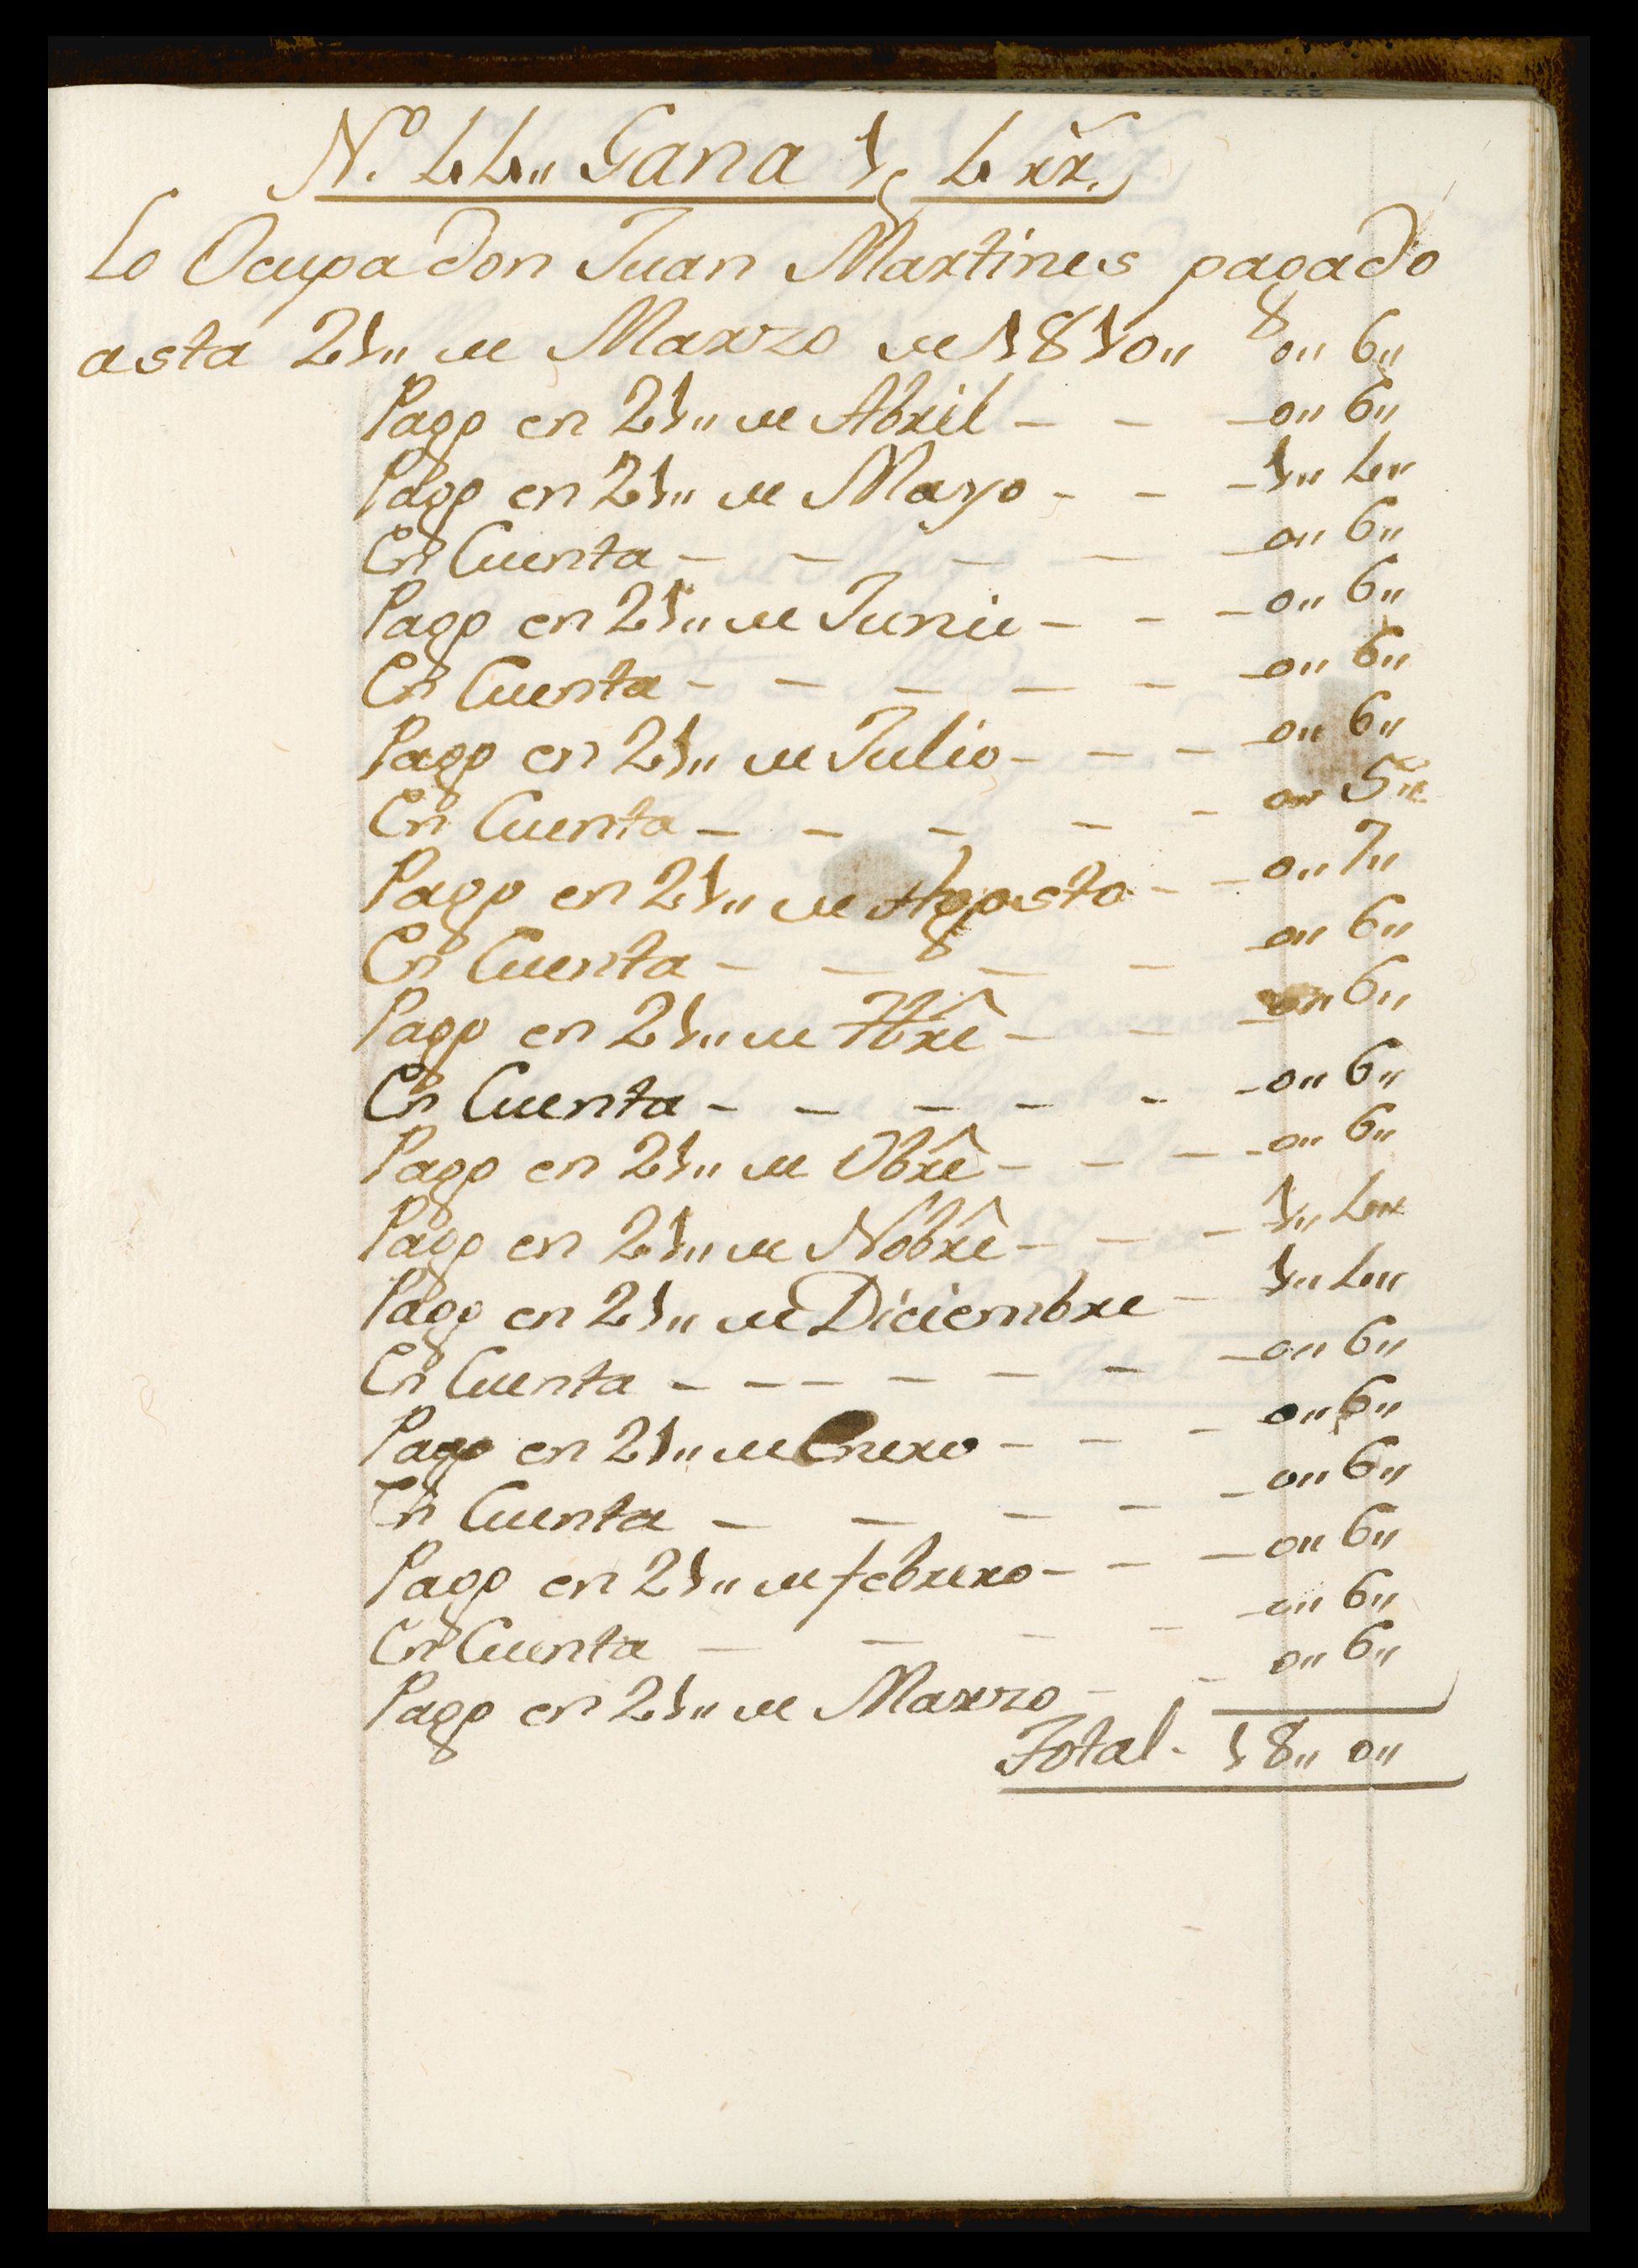 N.º 44,, Gana 1, 4 rr.
Lo Ocupa don Juan Martines pagado
asta 21,, de Marzo de 1810,, 0,, 6,,
Pago en 21,, de Abril - - - 0,, 6,,
Pago en 21,, de Mayo - - - 1,, 4,,
En Cuenta - - - - - 0,, 6,,
Pago en 21,, de Junie - - - 0,, 6,,
En Cuenta - - - - - - 0,, 6,,
Pago en 21,, de Julio - - - - 0,, 6,,
En Cuenta - - - - - 0,, 5,,
Pago en 21,, de Agosto - - 0,, 7,,
En Cuenta - - - - - 0,, 6,,
Pago en 21,, de 7brê - - - 0,, 6,,
En Cuenta - - - - - - 0,, 6,,
Pago en 21,, de Obrê - - - - 0,, 6,,
Pago en 21,, de Nobrê - - - 1,, 4,,
Pago en 21,, de Diciembre - 1,, 4,,
En Cuenta - - - - - - - 0,, 6,,
Pago en 21,, de Enero - - - 0,, 6,,
En Cuenta - - - - - 0,, 6,,
Pago en 21,, de febrero - - - 0,, 6,,
En Cuenta - - - - - 0,, 6,,
Pago en 21,, de Marzo - - 0,, 6,,
Total - 18,, 0,,